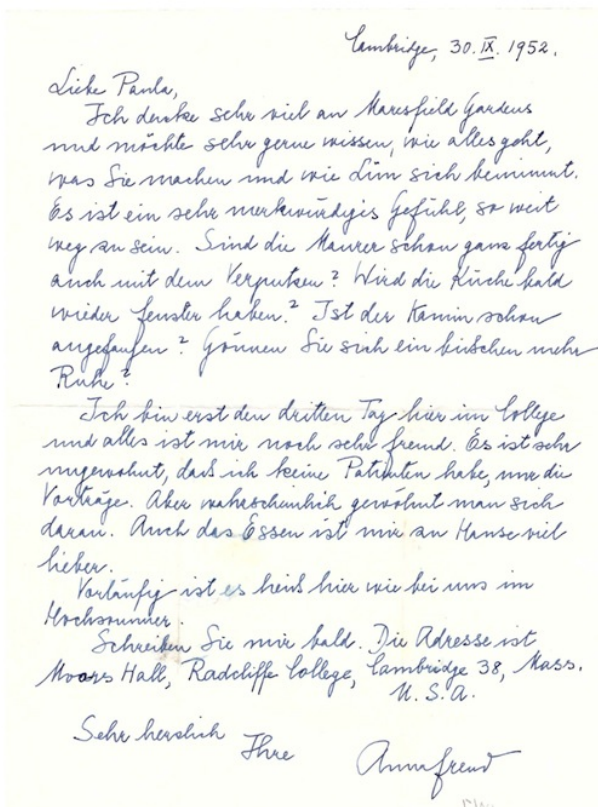 Cambridge, 30. IX. 1952.
Liebe Paula,
Ich denke sehr viel an Maresfield Gardens
und möchte sehr gerne wissen, wie alles geht,
was Sie machen und wie Lün sich benimmt.
Es ist ein sehr merkwürdiges Gefühl, so weit
weg zu sein. Sind die Maurer schon ganz fertig
auch mit dem Verputzen? Wird die Küche bald
wieder Fenster haben? Ist der Kamin schon
angefangen? Gönnen Sie sich ein bisschen mehr
Ruhe?
Ich bin erst den dritten Tag hier im College
und alles ist mir noch sehr fremd. Es ist sehr
ungewohnt, daß ich keine Patienten habe, nur die
Vorträge. Aber wahrscheinlich gewöhnt man sich
daran. Auch das Essen ist mir zu Hause viel
lieber.
Vorläufig ist es heiß hier wie bei uns im
Hochsommer.
Schreiben Sie mir bald. Die Adresse ist
Moors Hall, Radcliffe College, Cambridge 38, Mass.
U. S. A.
Sehr herzlich
Ihre
Anna Freud